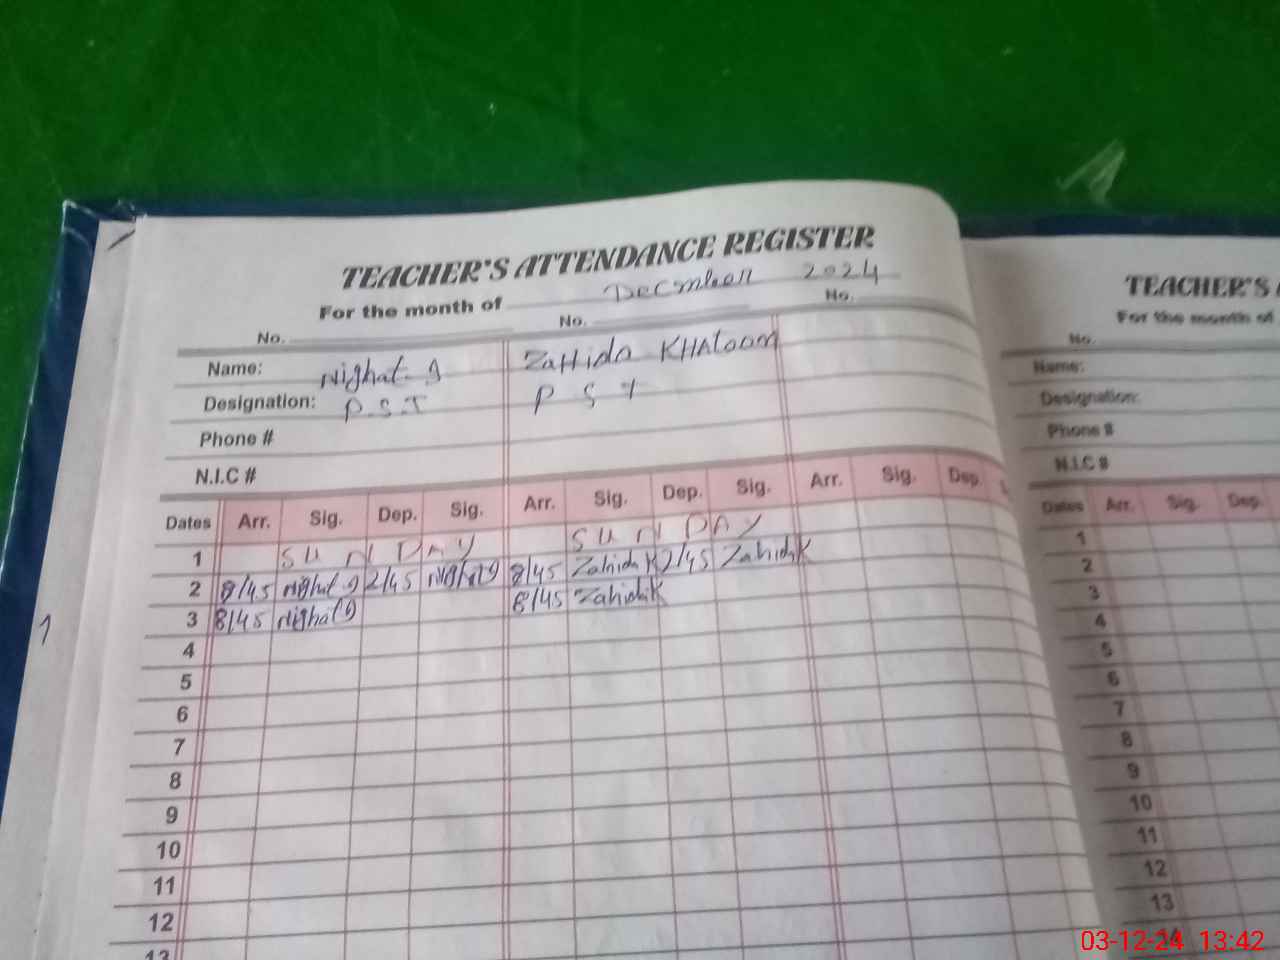 TEACHER'S ATTENDANCE REGISTER
For the month of December 2024
No. No. No.
Name: Nighat g ZaHida KHAtoon
Designation: P.S.T P S T
Phone #
N.I.C #
Dates Arr. Sig. Dep. Sig. Arr. Sig. Dep. Sig. Arr. Sig. Dep. S
1 SUNDAY SUNDAY
2 8/45 Nighat g 2/45 Nighat g 8/45 Zahida K 2/45 Zahida K
3 8/45 Nighat g 8/45 Zahida K
4
5
6
7
8
9
10
11
12
13
1
TEACHER'S A
For the month of
No.
Name:
Designation:
Phone #
N.I.C #
Dates Arr. Sig. Dep.
1
2
3
4
5
6
7
8
9
10
11
12
13
14
03-12-24 13:42